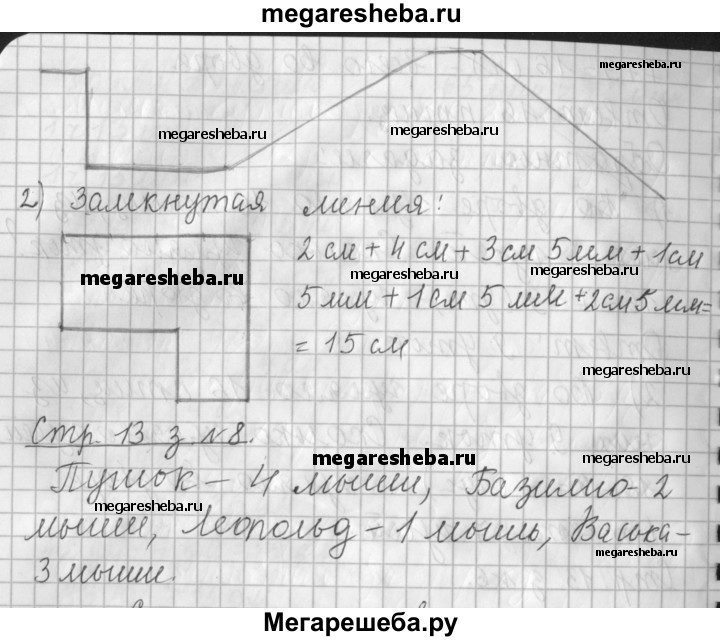 megaresheba.ru
megaresheba.ru
megaresheba.ru
megaresheba.ru
2) Замкнутая линия:
megaresheba.ru
2 см + 4 см + 3 см 5 мм + 1 см
megaresheba.ru
megaresheba.ru
5 мм + 1 см 5 мм + 2 см 5 мм =
= 15 см
megaresheba.ru
Стр. 13 з. №8.
megaresheba.ru
megaresheba.ru
Пушок - 4 мыши, Базилио - 2
megaresheba.ru
мыши, Леопольд - 1 мышь, Васька -
megaresheba.ru
3 мыши.
Мегарешеба.ру